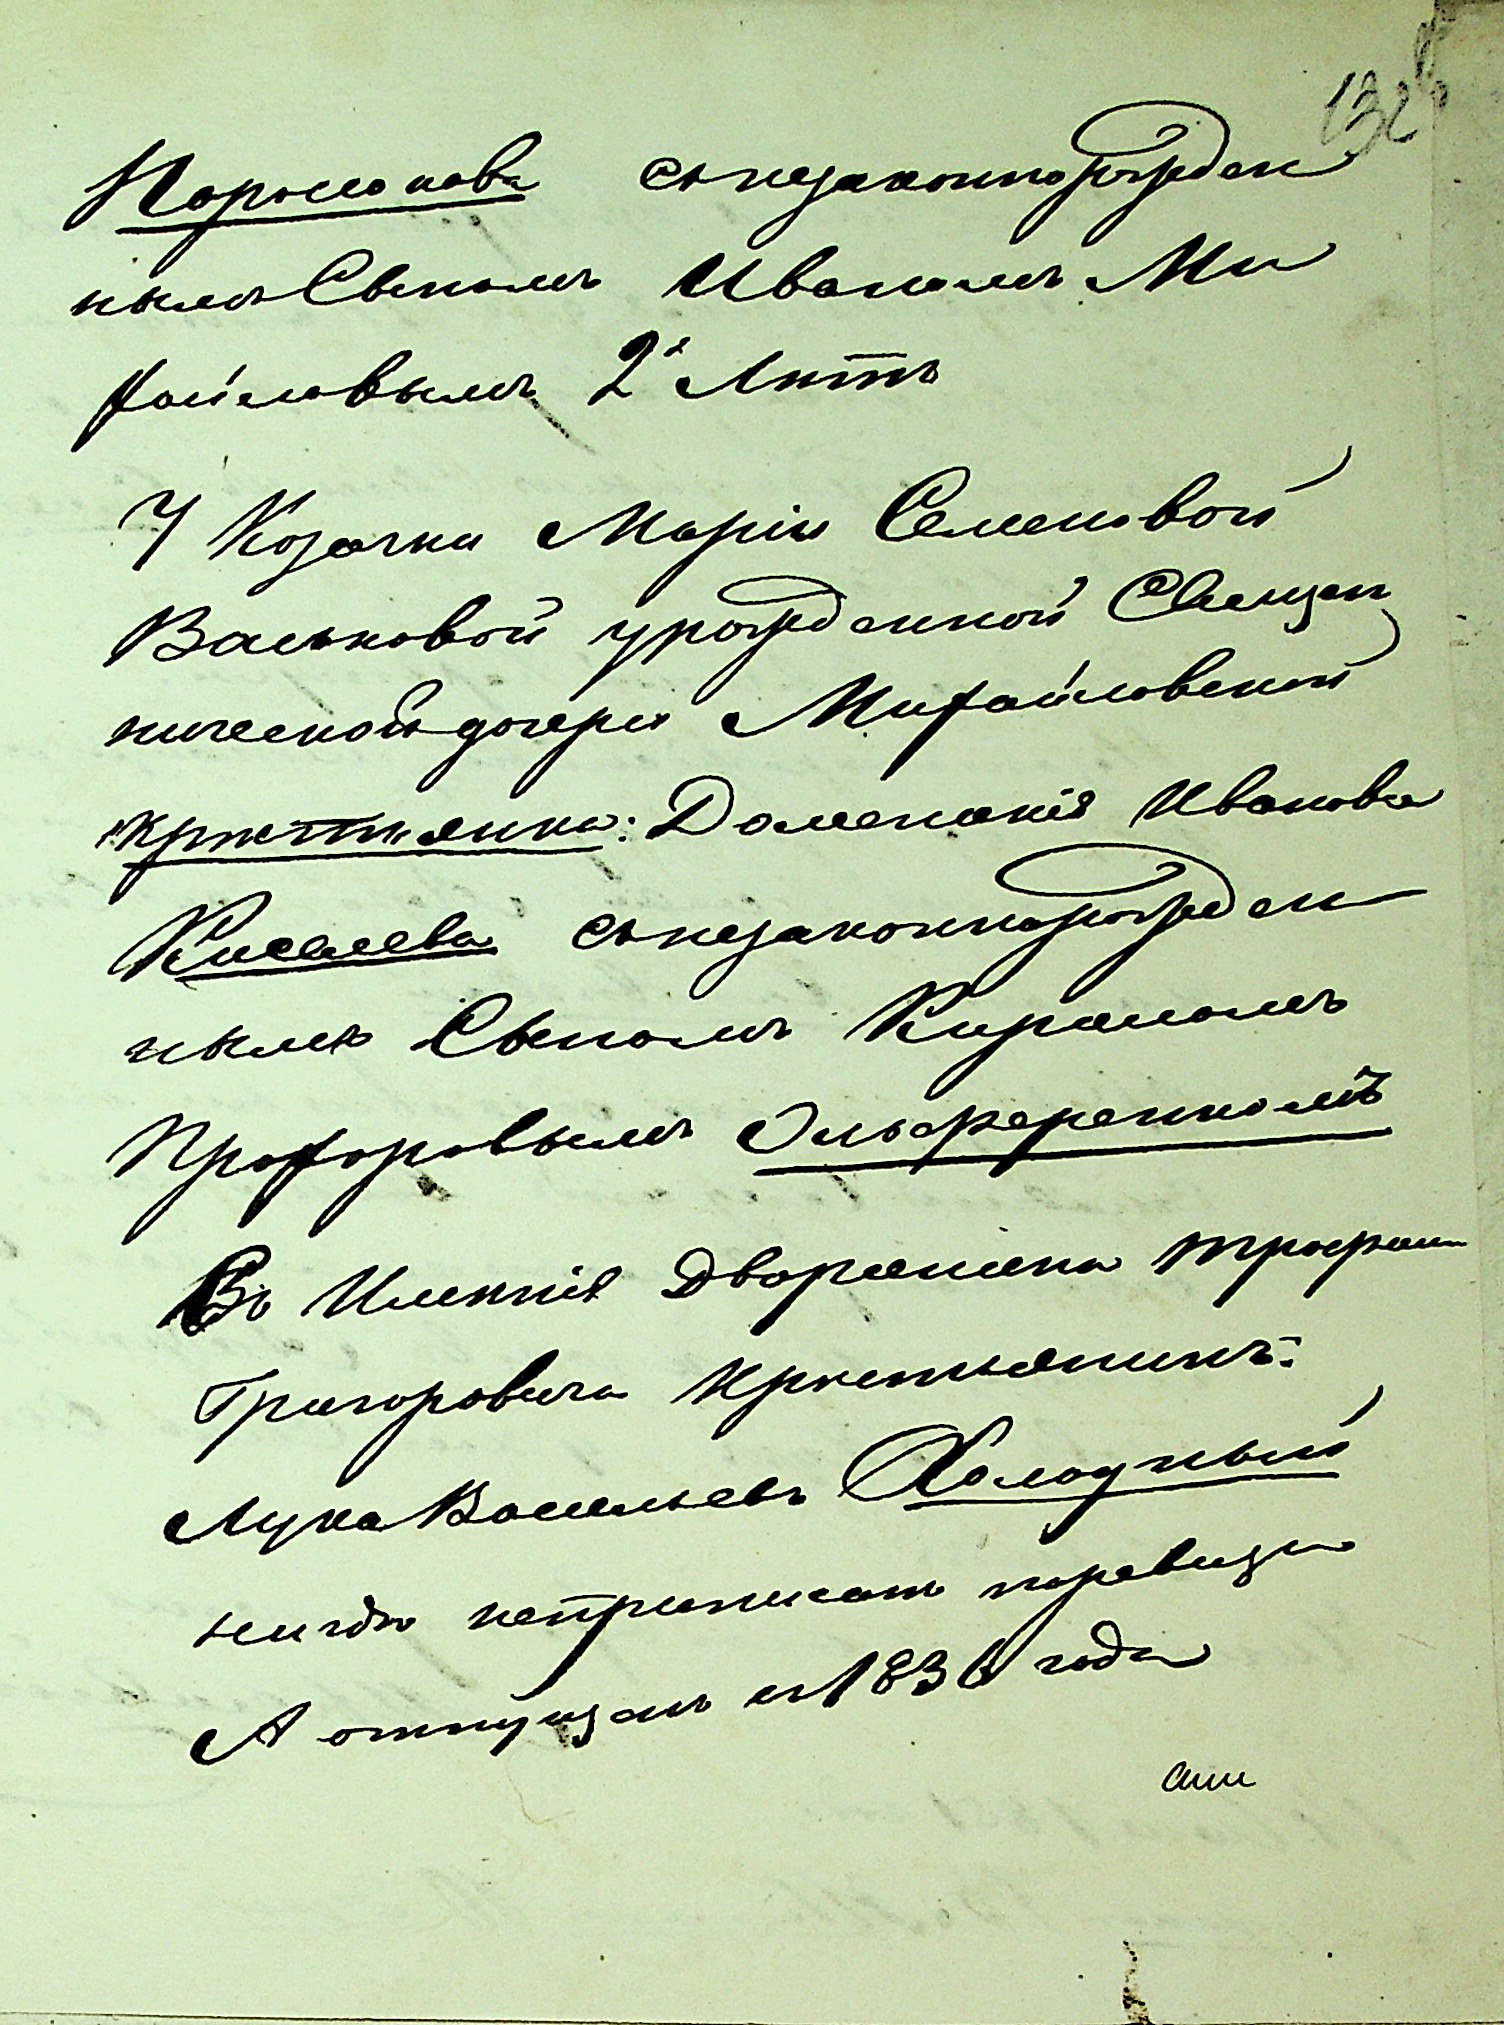 132
Порошкова съ незаконнорожден
нымъ Сыномъ Иваномъ Ми
хайловымъ 2х Лѣтъ
У Козачки Маріи Семеновой
Васьковой урожденной Священ
нической дочери Михайловской
крѣстьянка: Доменикія Иванова
Киселева съ незаконнорожден
нымъ Сыномъ Кирономъ
Прохоровымъ Ольференкомъ
Въ Имѣніи Дворянина Трофима
Григоровича Крестьянинъ:
Лука Васильевъ Холодный
нигдѣ неприписанъ поревизіи
А отпущенъ съ 1836 года